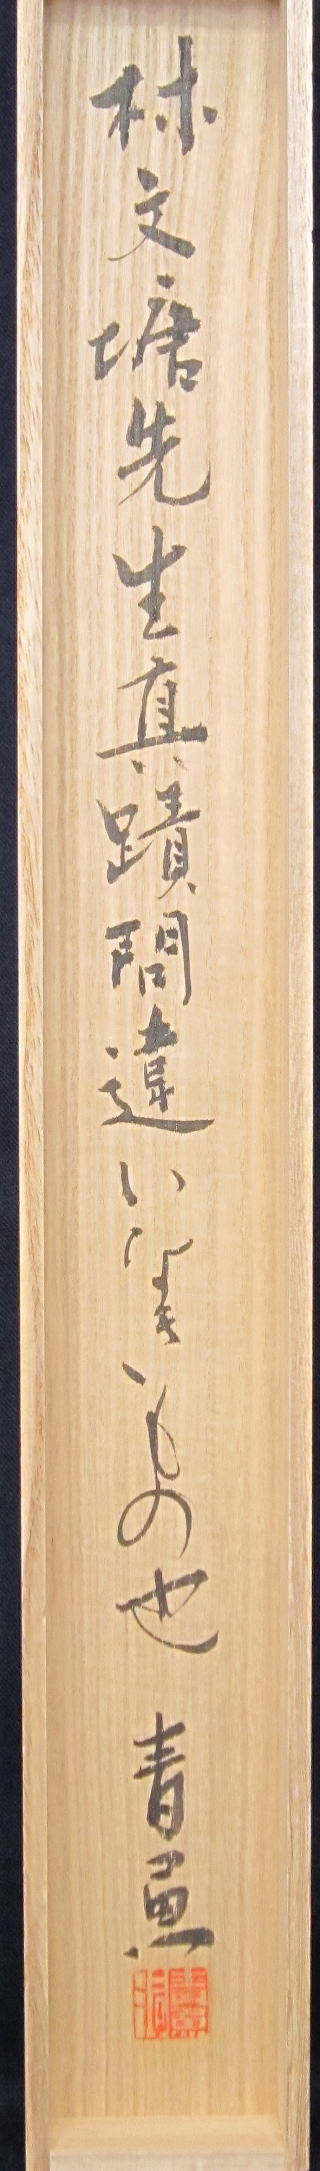 林文塘先生真蹟間違いなきもの也 青邑